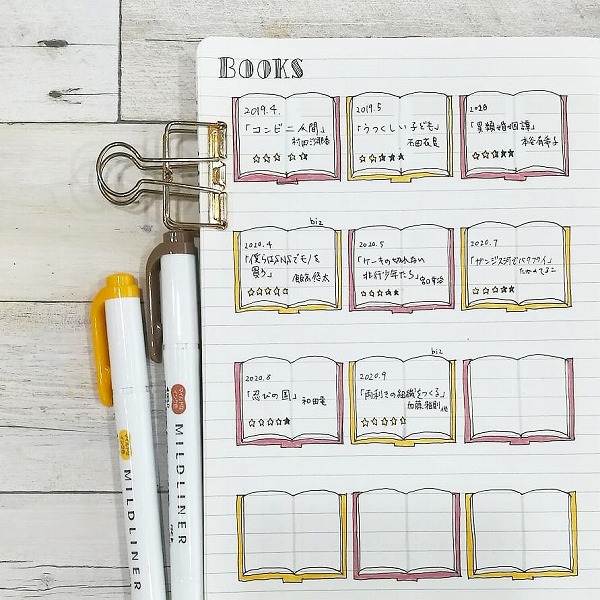 BOOKS
2019.4.
「コンビニ人間」
村田沙耶香
2019.5
「うつくしい子ども」
石田衣良
「異類婚姻譚」
本谷有希子
biz
2020.4
「僕らはSNSでモノを
買う」 飯髙悠太
2020.5
「ケーキの切れない
非行少年たち」宮口幸治
2020.7
「ガンジス河でバタフライ」
たかのてるこ
2020.8
「忍びの国」 和田竜
biz
2020.9
「両利きの組織をつくる」
加藤雅則 他
MILDLINER
MILDLINER